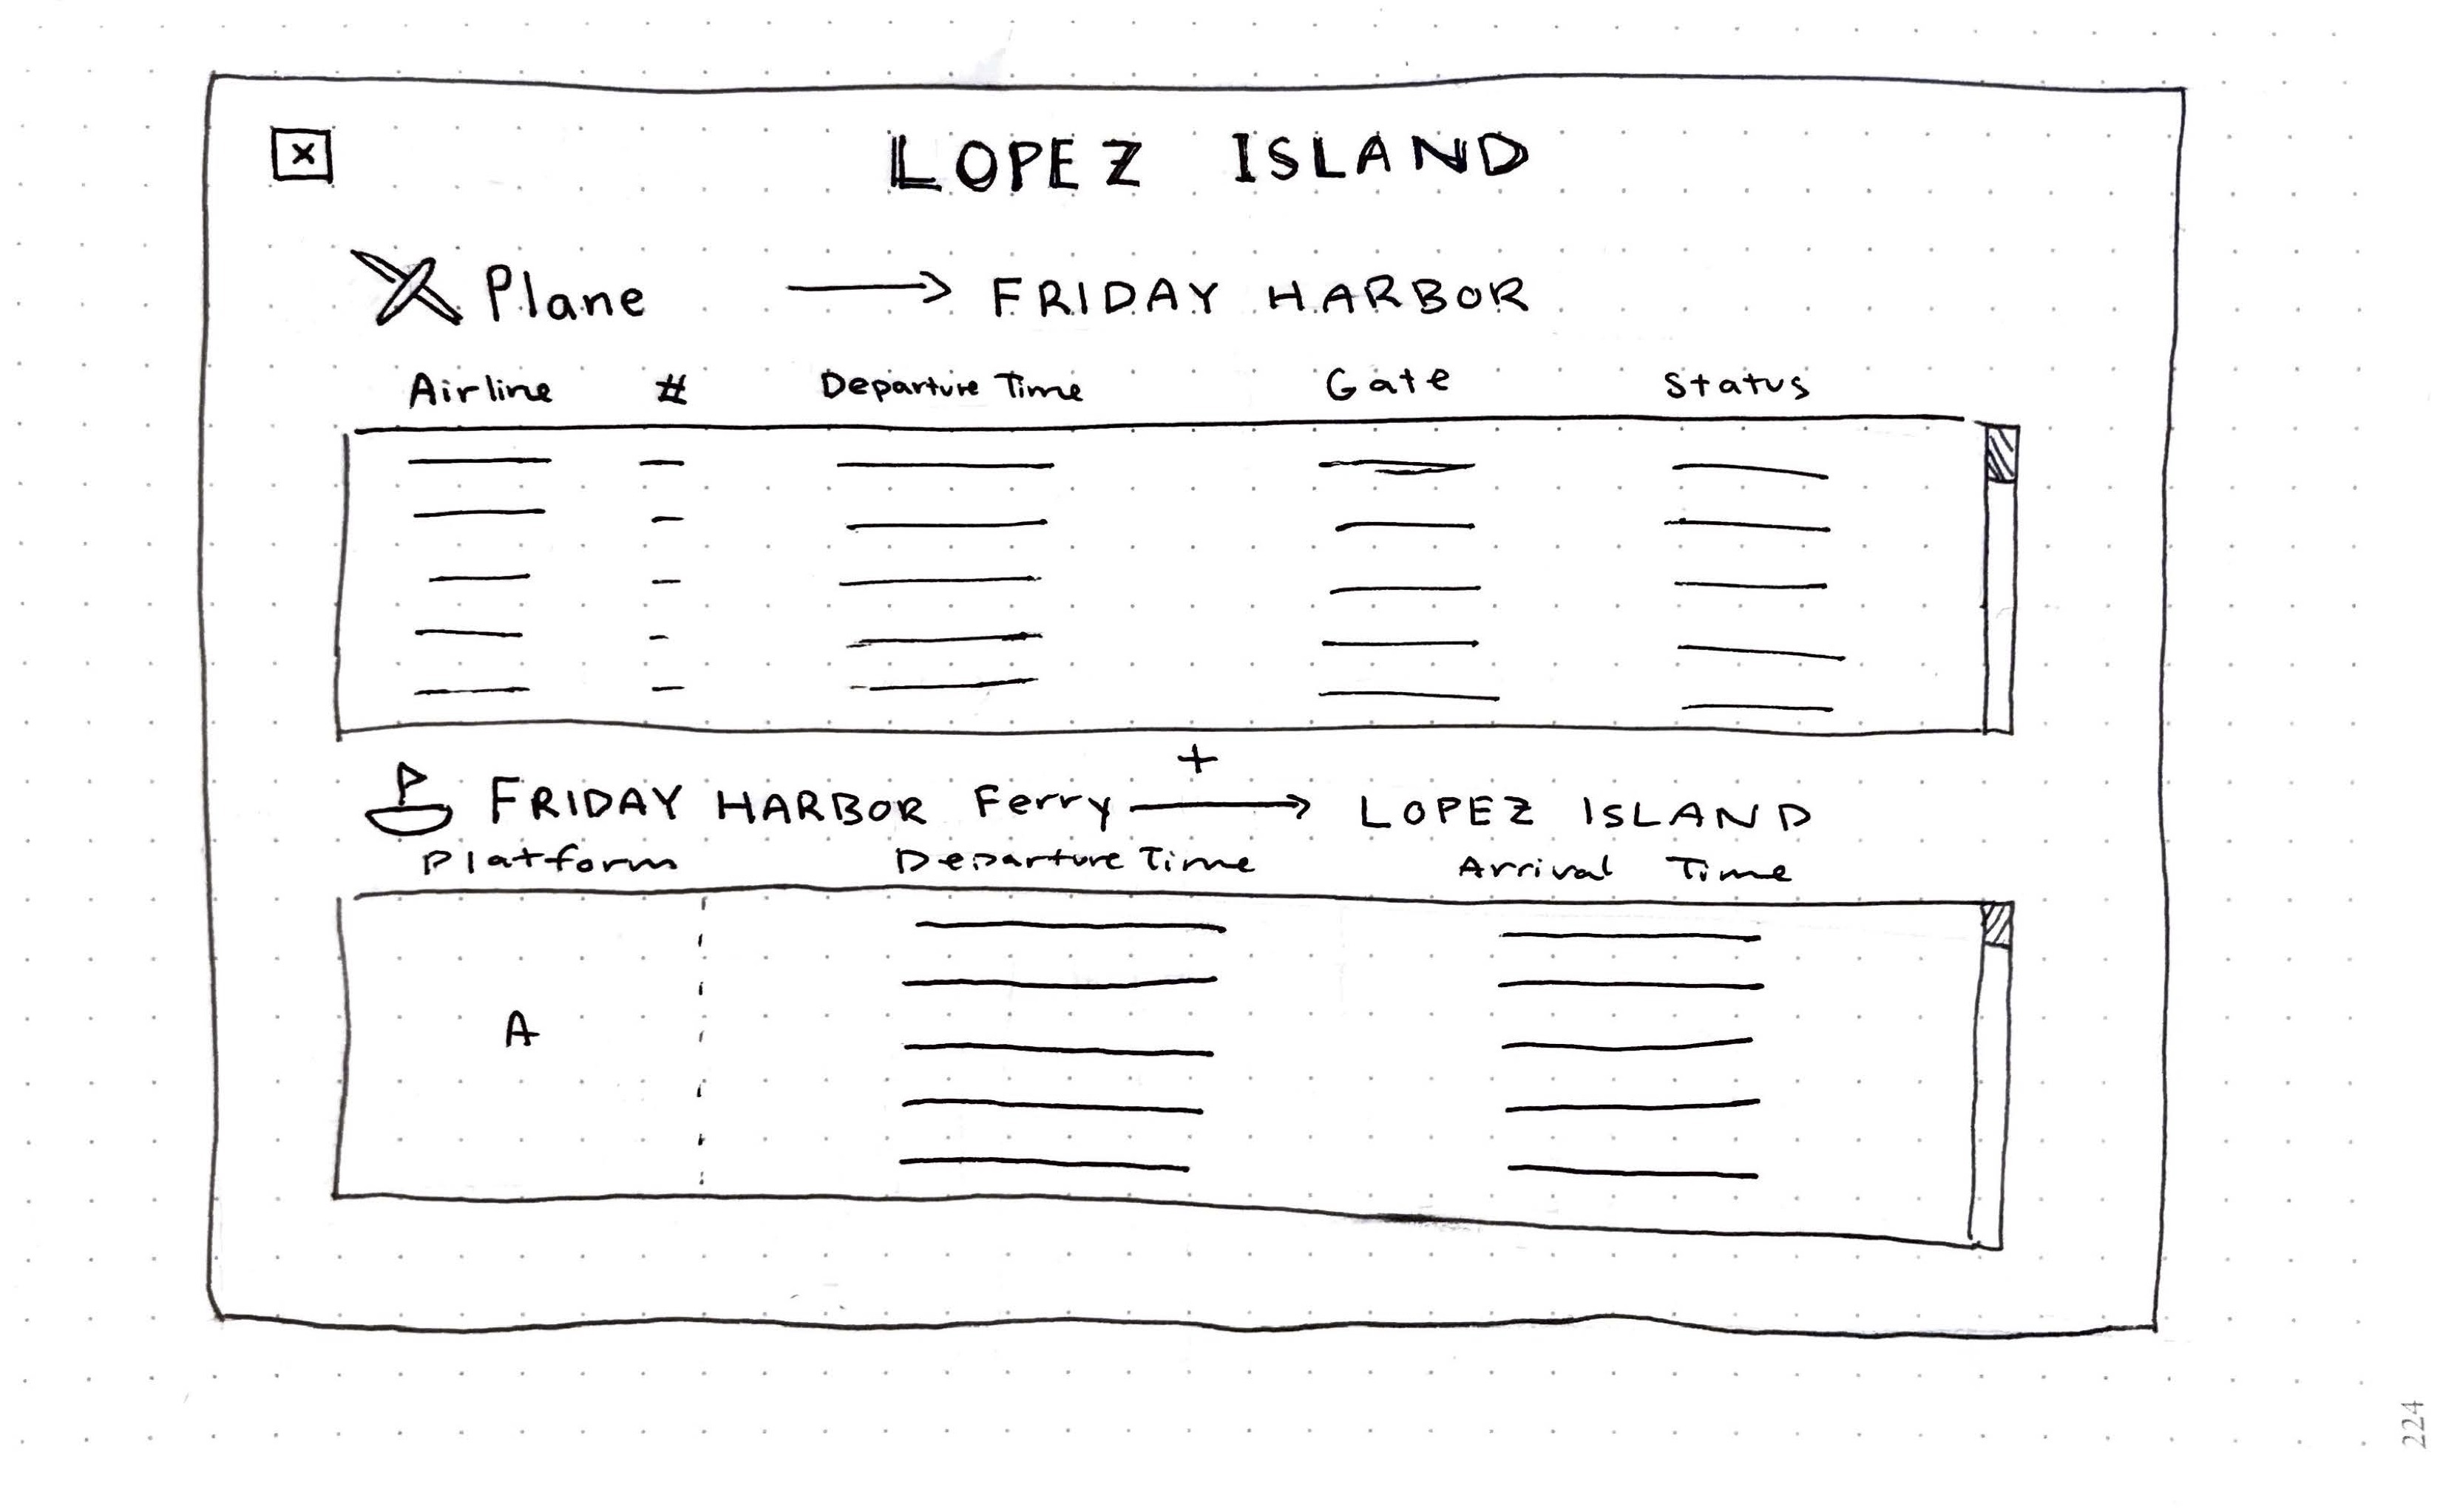 x LOPEZ ISLAND
Plane → FRIDAY HARBOR
Airline # Departure Time Gate Status
+
FRIDAY HARBOR Ferry → LOPEZ ISLAND
Platform Departure Time Arrival Time
A
224